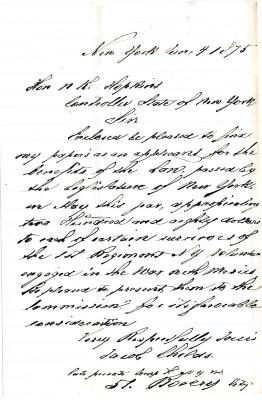 New York June 4 1875
Hon N K Hopkins
Controller State of New York
Sir
Inclosed be pleased to find
my papers as an applicant for the
benefits of the Law, passed by
the Legislature of New York
in May this year, appropriating
two Hundred and eighty dollars
to each of certain survivors of
the 1st Regiment N Y Volunteers
engaged in the War with Mexico
Be pleased to present them to the
Commission for its favorable
consideration
Very Respectfully Yours
Jacob Childs
late private
Bowery